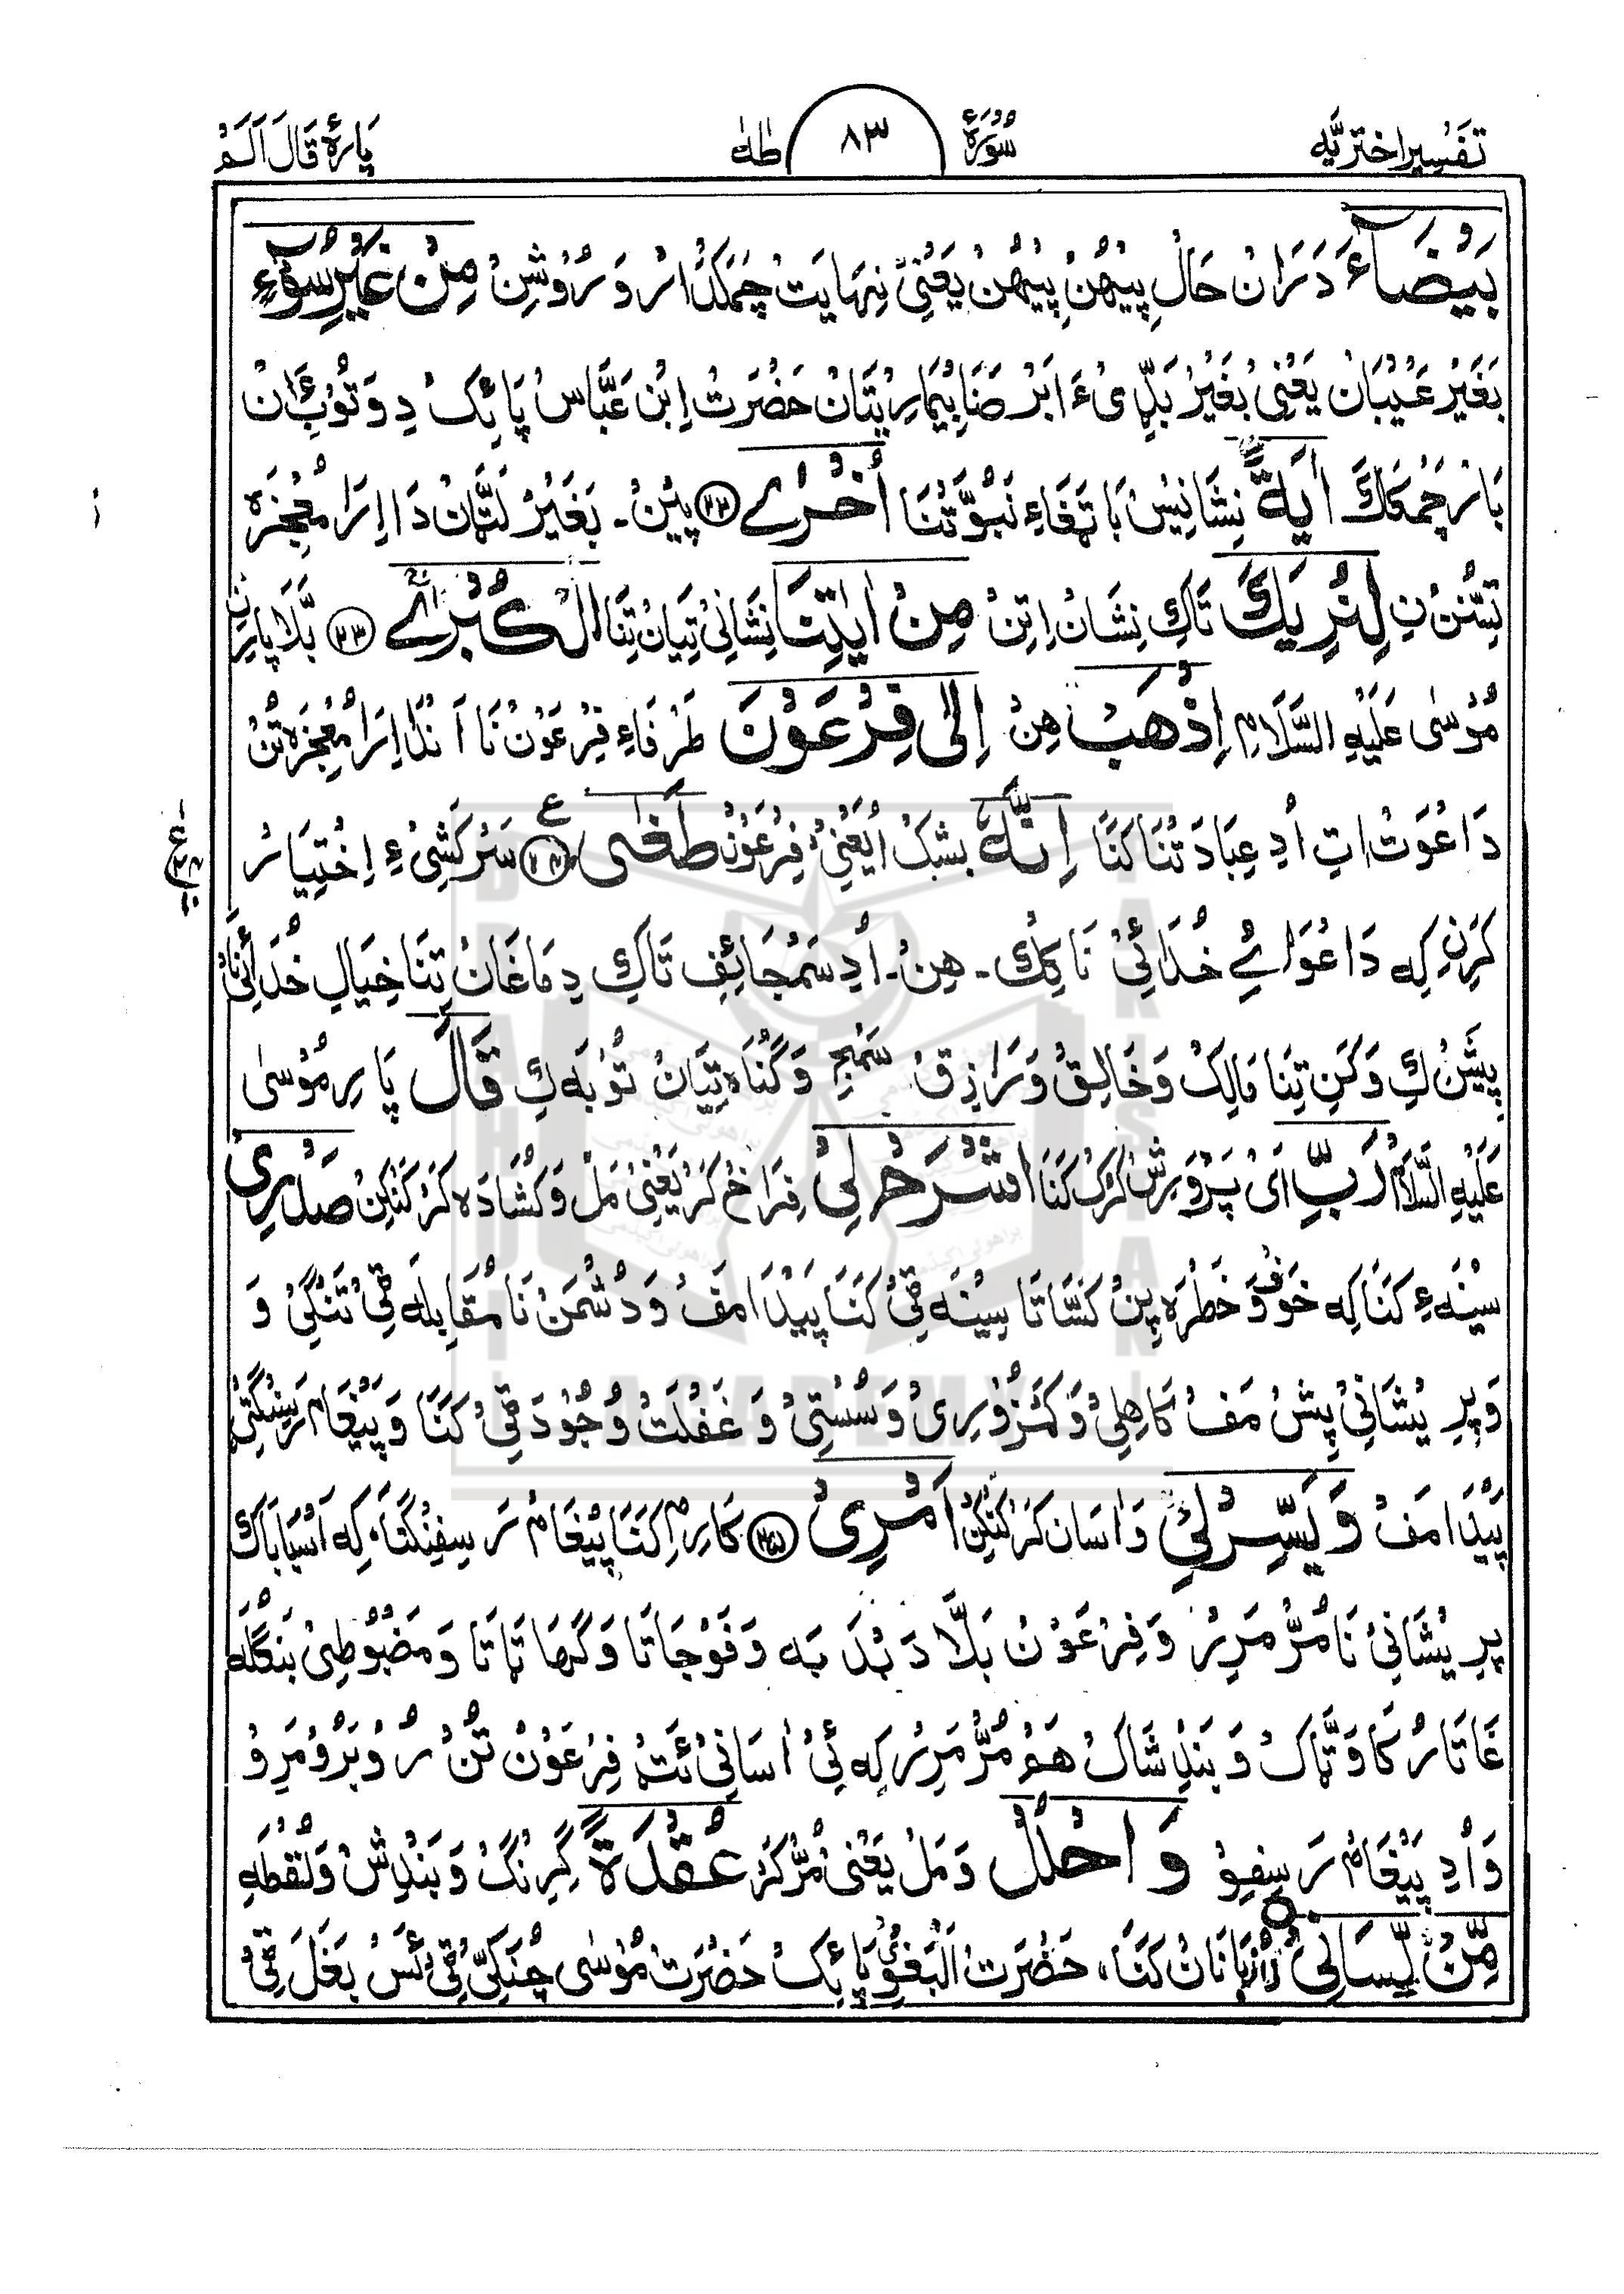 تَفسِیرِاختَرِیَّه سُورَۃُ ٨٣ طٰهٰ پَارَۂ قَالَ اَلَم
بَیْضَآءَ دَرَانْ حَالِ پِیْهُنْ پِیْهُنْ یَعْنِیْ نِهَایَتْ چَمَکْدَار وَ رُوْشِنْ مِنْ غَیْرِسُوْٓءٍ
بَغَیْر عَیْبَانْ یَعْنِیْ بَغَیْرْ بَلَّاِئیْ ءَ اَبْرَصْ نَا بِیْمَارِیْتَانْ حَضْرَتْ اِبْن عَبَّاسْ پَائِکْ دِ وَتُوْبَ ءَانْ
بَازْ چَمَکَکَ اٰیَةً نِشَانِیْسْ بَا تَهَاءِ نَبُوَّتْنَا اُخْرٰے ٢٢ پِیْنْ۔ بَغَیْرْ لَتَّانْ دَا اِرَا مُعْجِزَہ
تِتْنُنْ نِ لِنُرِیَكَ تَاکِ نِشَانْ اِتِنْ مِنْ اٰیٰتِنَا نِشَانِیْ تِیَانْ تِنَا الْکُبْرٰے ٢٣ بَلَّا پَارِنِ
مُوْسٰی عَلَیْهِ السَّلَامْ اِذْهَبْ هِنْ اِلٰی فِرْعَوْنَ طَرْفَاءِ فِرْعَوْنْ نَا اَنْدَا اِرَا مُعْجِزَہ تُنْ
دَاعُوَتْ اِتِ اُدِ عِبَادَتْنَا کَنَا اِنَّهٗ بِشَکْ اُ یَعْنِیْ فِرْعَوْنْ طَغٰی ٢٤ ع سَرْکَشِیْ ءِ اِخْتِیَارْ
کَرَنِ کِه دَاعُوَائِے خُدَائِیْ نَا کِکْ۔ هِنْ۔ اُدِ سَمْجَائِفِ تَاکِ دِمَاغَانْ تِنَا خِیَالِ خُدَائِیْ نَا
پِشَّنْ کِ وَ کَنِ تِنَا مَالِکْ وَخَالِقْ وَرَازِقْ سَمْجِ وَگُنَاہ تِیَانْ تُوْبَه کِ قَالَ پَارِ مُوْسٰی
عَلَیْهِ السَّلَامْ رَبِّ اَیْ پَرْوَرِشْ کَرُکْ کَنَا اشْرَحْ لِیْ فِرَاخْ کَرْ یَعْنِیْ مَلْ وَکُشَادَہ کَرْ کَنْکِنْ صَدْرِیْ
سِیْنَه ءِ کَنَا کِه خَوْف وَ خَطْرَہ پِنْ کَسَّاتَا سِیْنَه ٹِیْ کَنَا پَیْدَا مَفْ وَدُشْمَنْ نَا مُقَابِلَه ٹِیْ تَنْگِیْ وَ
وَپِرِیْشَانِیْ پِشْ مَفْ کَاهِلِیْ وَکَمْزُوْرِیْ وَسُسْتِیْ وَ غَفْلَتْ وُجُوْدَ ٹِیْ کَنَا وَپَیْغَامْ رَسِفِنْگَتِیْ
پَیْدَا مَفْ وَیَسِّرْلِیْٓ وَاٰسَانْ کَرْ کَنْکِنْ اَمْرِیْ ٢٥ کَارِمِ کَنَا پَیْغَامْ رَسِفِنْگَنَا، کِه اَسْبَابَاکْ
پِرِیْشَانِیْ نَا مُرْ مَرِیرْ وَفِرْعَوْنْ بَلَّا دَبْدَبَه وَفَوْجَاتَا وَگَهَاٹَاتَا وَمَضْبُوْطِیْ بَنْگَلَه
غَاتَا رُکَاوَٹَّاکْ وَبَنْدِشَاکْ هَمْ مُرْ مَرِیرْ کِه ئِیْ اٰسَانِیْ ئَٹْ فِرْعَوْنْ تُنْ رُوْبَرُوْ مَرِوْ
وَاُدِ پَیْغَامْ رَسِفِوْ وَاحْلُلْ وَمَلْ یَعْنِیْ مُرْ کَرْ عُقْدَةً گِرِنْگْ وَبَنْدِشْ وَلُقْطَه
مِّنْ لِّسَانِیْ اَزْبَانَانْ کَنَا، حَضْرَتْ اَلْبَغَوِیْ پَائِکْ حَضْرَتْ مُوْسٰی چُنَکِیْ ٹِیْ ئَسْ بَغَلْ ٹِیْ